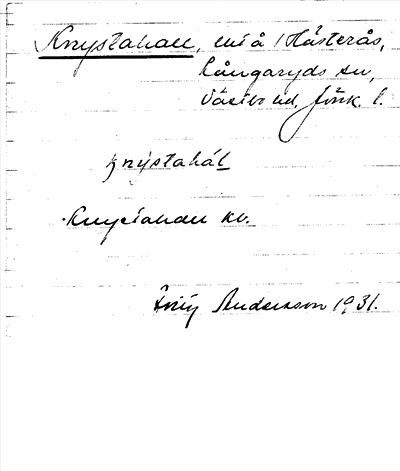 Knystahall, lht å 1 Hästerås,
Långaryds sn,
Västbo hd, Jönk. l.
knystahál
Knystahall kv.
Andersson 1931.